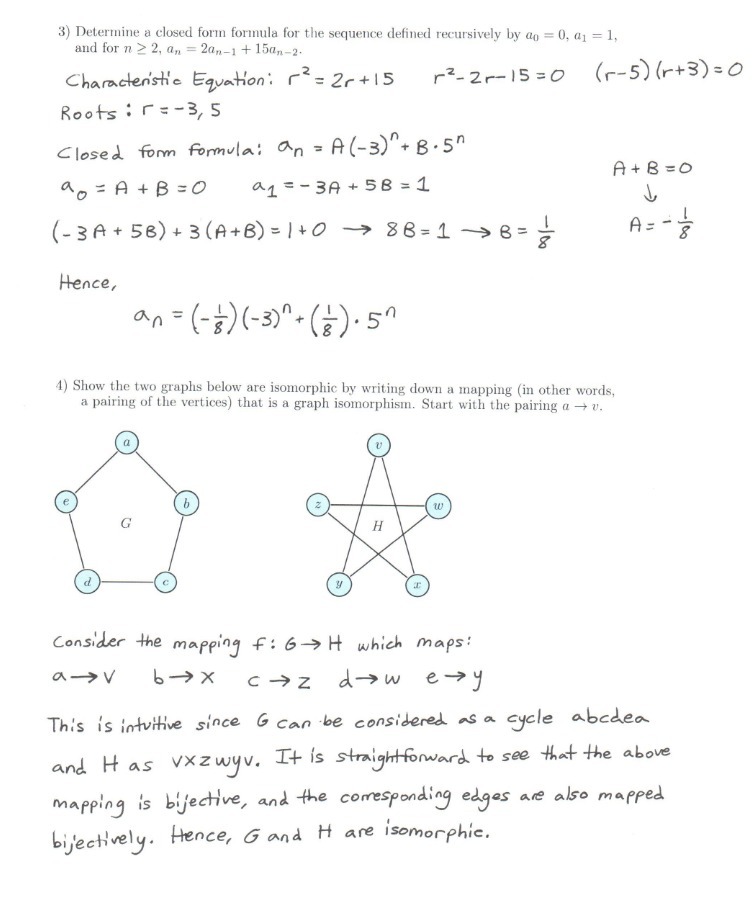 3) Determine a closed form formula for the sequence defined recursively by a₀ = 0, a₁ = 1,
and for n ≥ 2, aₙ = 2aₙ₋₁ + 15aₙ₋₂.
Characteristic Equation: r² = 2r+15 r²-2r-15=0 (r-5)(r+3)=0
Roots: r=-3, 5
Closed form formula: aₙ = A(-3)ⁿ + B·5ⁿ
A+B=0
↓
a₀ = A + B = 0 a₁ = -3A + 5B = 1
(-3A + 5B) + 3(A+B) = 1+0 → 8B=1 → B= 1/8 A= -1/8
Hence,
aₙ = (-1/8)(-3)ⁿ + (1/8)·5ⁿ
4) Show the two graphs below are isomorphic by writing down a mapping (in other words,
a pairing of the vertices) that is a graph isomorphism. Start with the pairing a → v.
a v
e b z w
G H
d c y x
Consider the mapping f: G→H which maps:
a→v b→x c→z d→w e→y
This is intuitive since G can be considered as a cycle abcdea
and H as vxzwyv. It is straightforward to see that the above
mapping is bijective, and the corresponding edges are also mapped
bijectively. Hence, G and H are isomorphic.